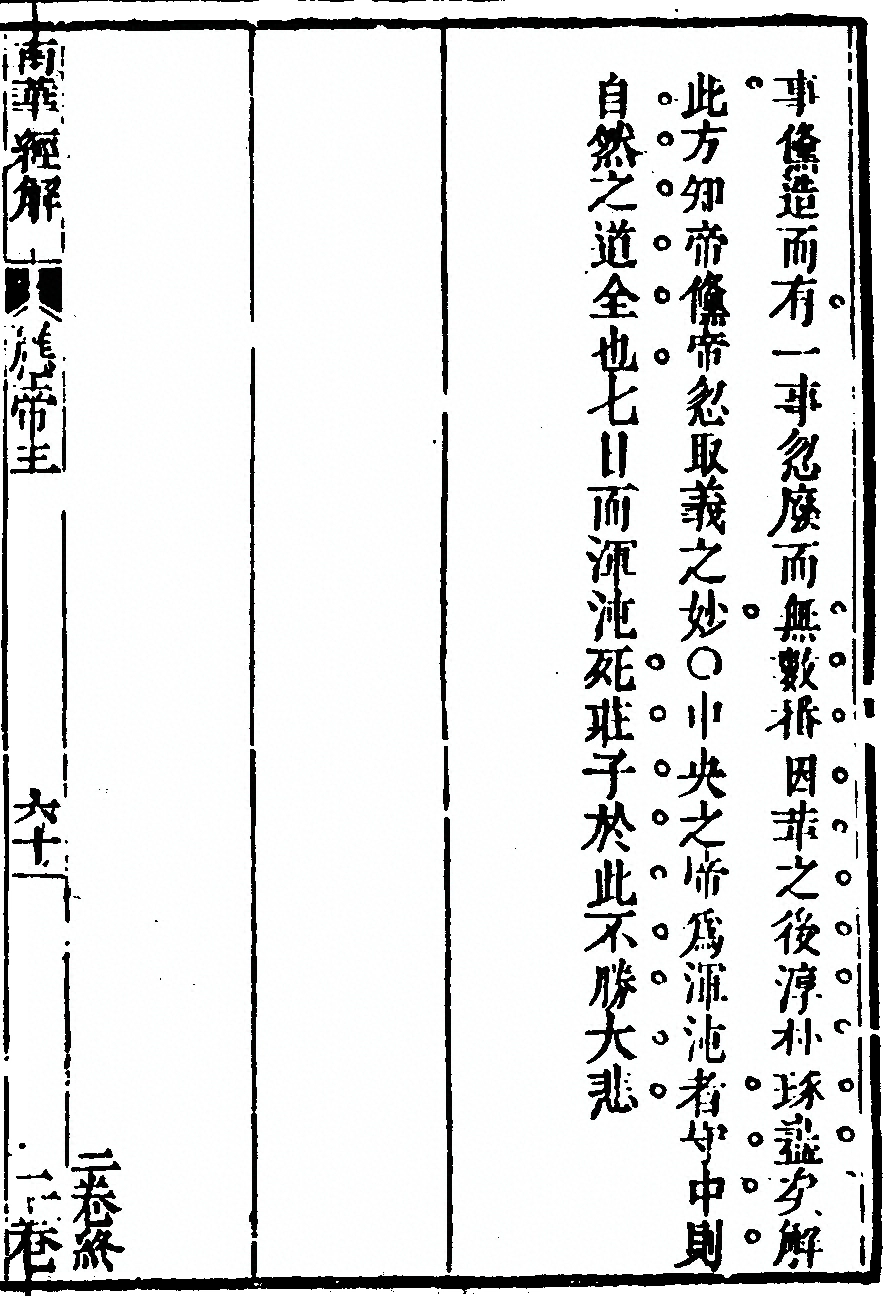 事儵造而有一事忽廢而無數番因革之後淳朴琢盡矣解
此方知帝儵帝忽取義之妙〇中央之帝爲渾沌者守中則
自然之道全也七日而渾沌死莊子於此不勝大悲
二卷終
南華經解
應帝王
六十
二卷